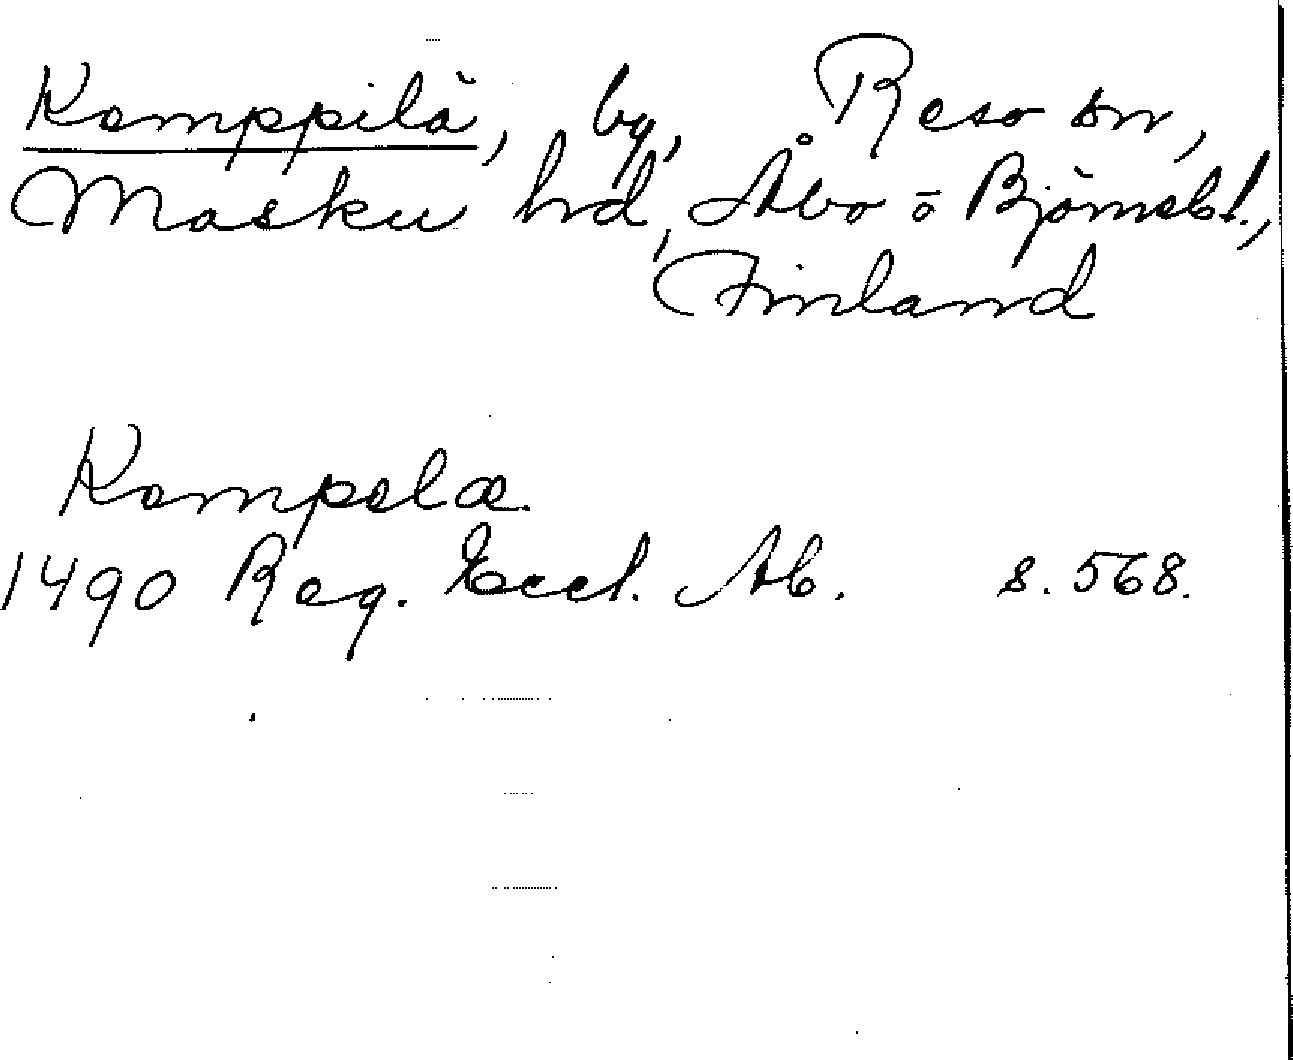 Kemppilä, by, Reso sn,
Masku hd, Åbo o Björnebl.,
Finland
Kempelæ.
1490 Reg. Eccl. Ab. s. 568.